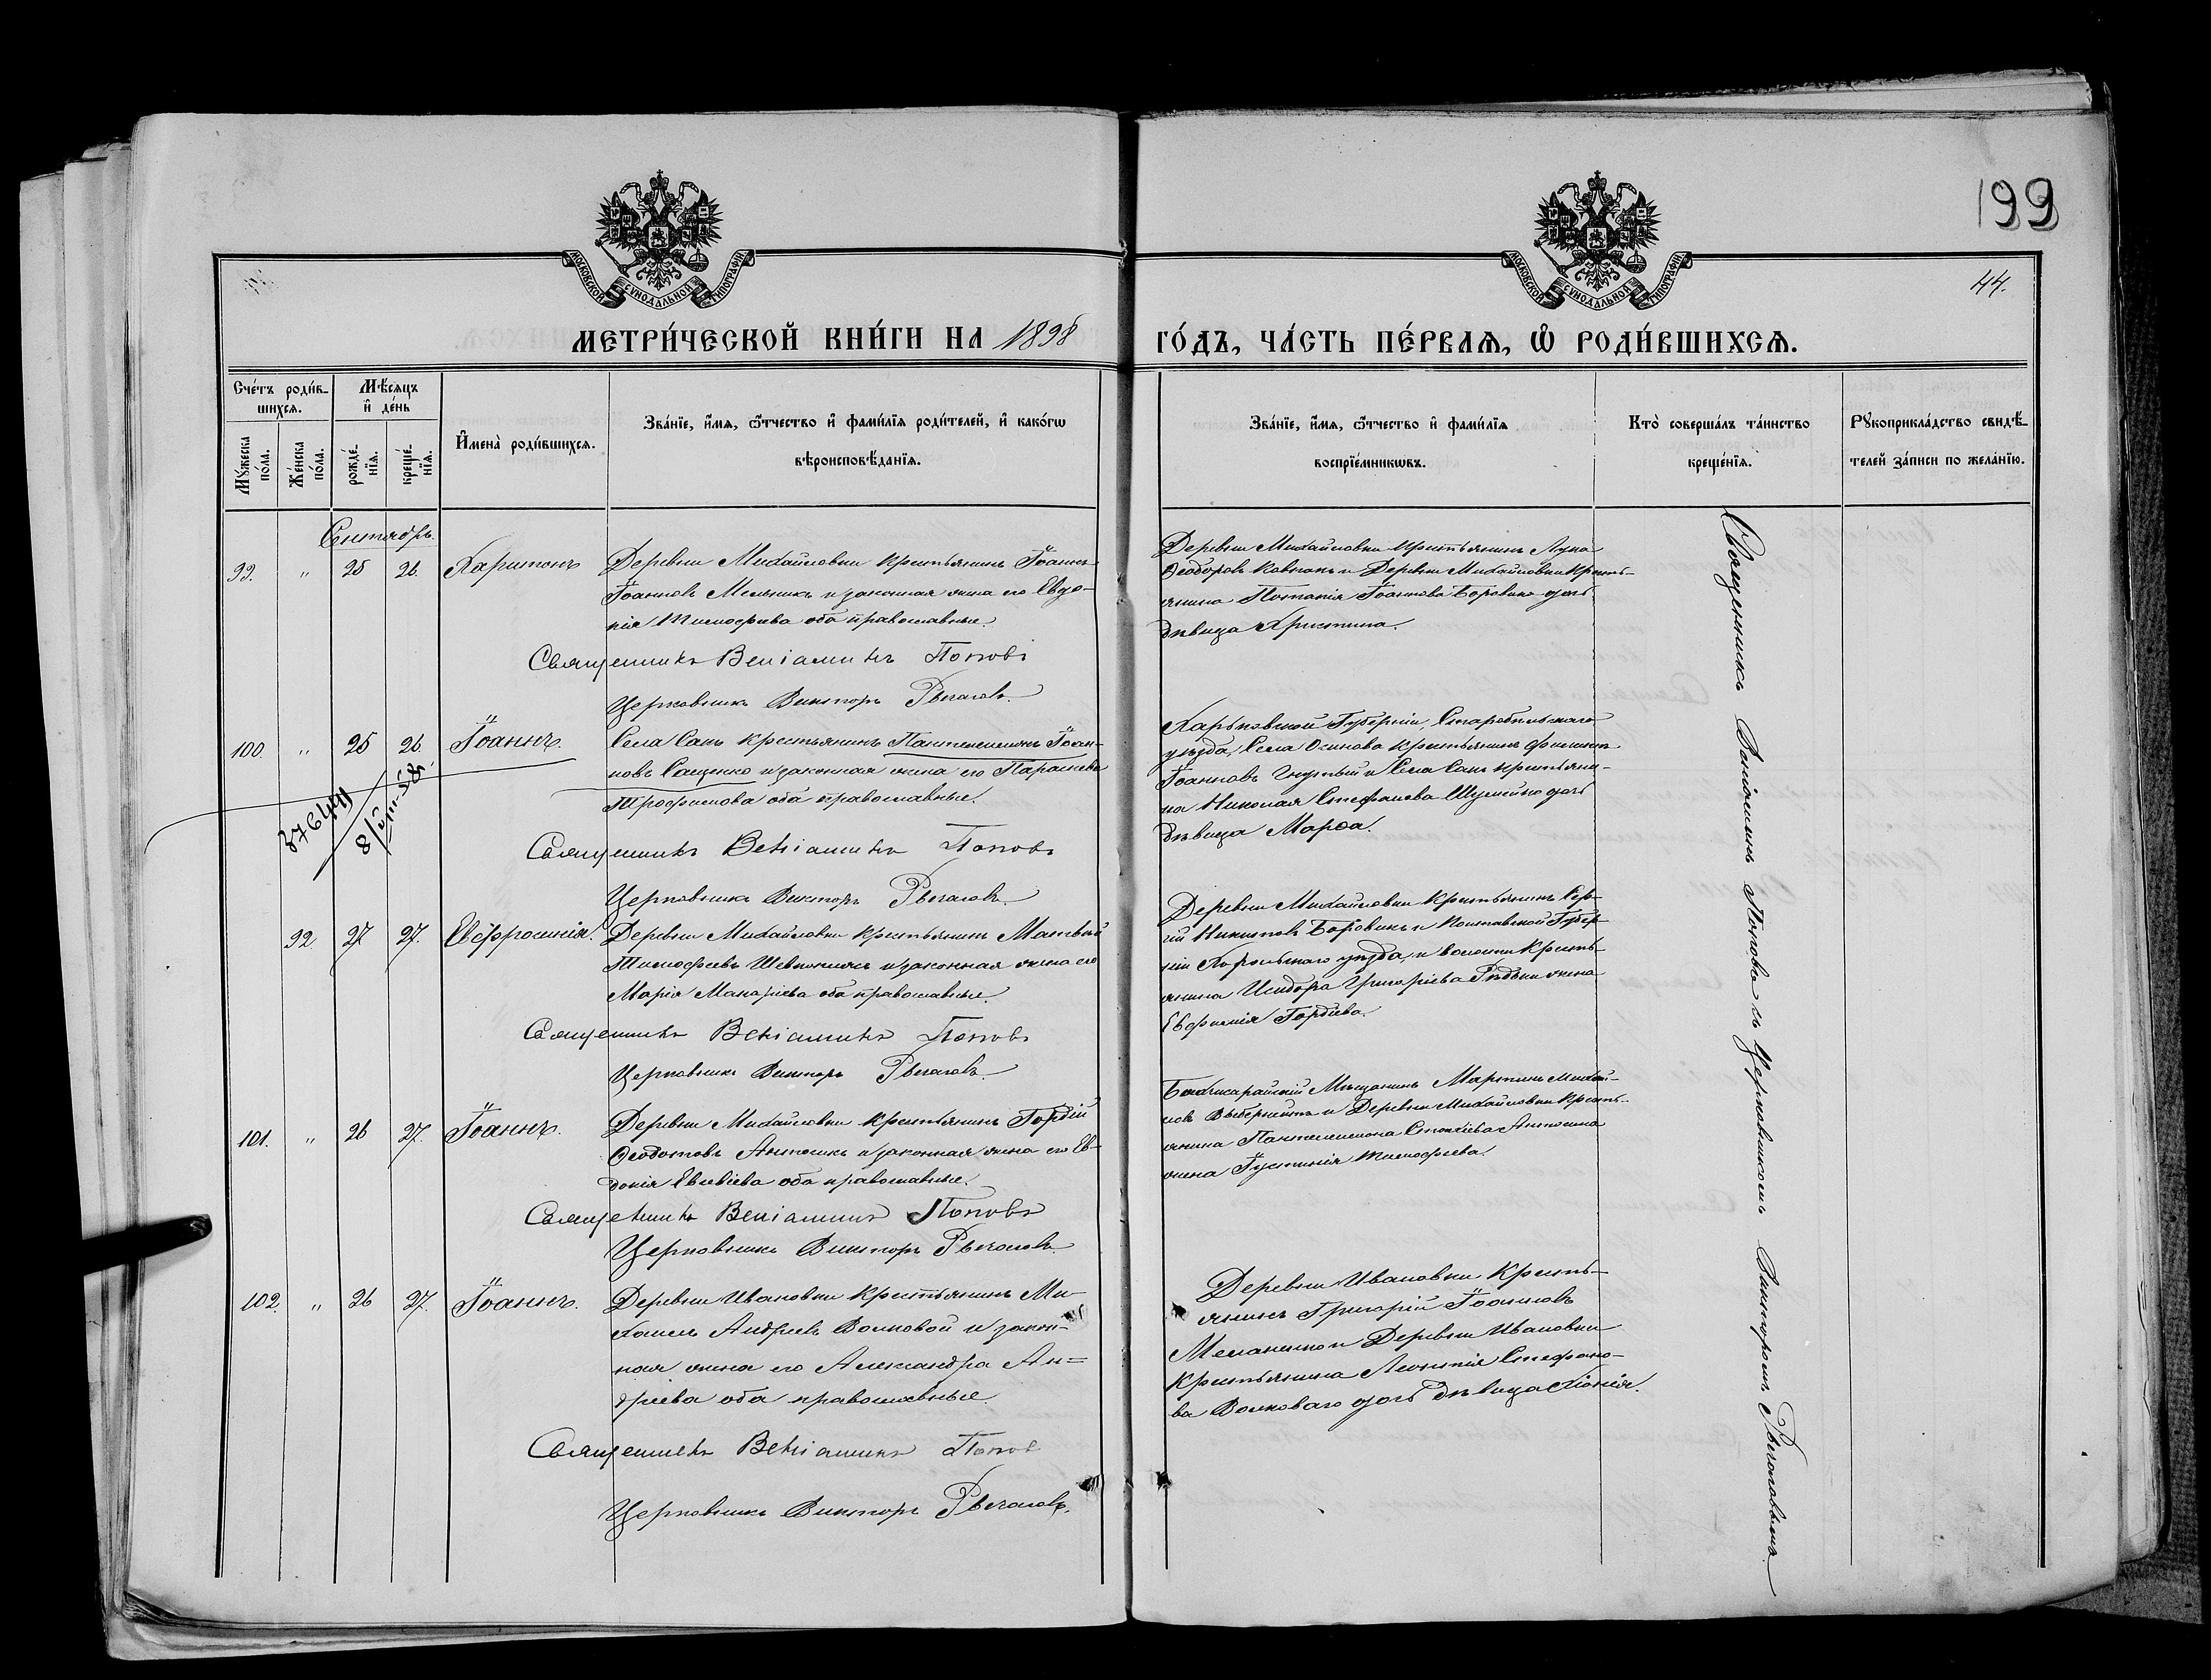 199
44.
МОСКОВСКОЙ СѴНОДАЛЬНОЙ ТИПОГРАФІИ
МОСКОВСКОЙ СѴНОДАЛЬНОЙ ТИПОГРАФІИ
МЕТРИ́ЧЕСКОЙ КНИ́ГИ НА 1898
ГО́ДЪ, ЧА́СТЬ ПЕ́РВАѦ, Ѽ РОДИ́ВШИХСѦ.
Сче́тъ роди́в-
шихсѧ.
Мѣ́сѧцъ
и҆ де́нь
Мꙋ́жеска
по́ла.
Же́нска
по́ла.
рожде́-
нїѧ.
креще́-
нїѧ.
И҆мена̀ роди́вшихсѧ.
Зва́нїе, и҆́мѧ, ѻ҆́тчество и҆ фами́лїѧ роди́телей, и҆ како́гѡ
вѣроисповѣ́данїѧ.
Зва́нїе, и҆́мѧ, ѻ҆́тчество и҆ фами́лїѧ
воспрїе́мникѡвъ.
Кто̀ соверша́лъ та́инство
креще́нїѧ.
Рꙋкоприкла́дство свидѣ́-
телей за́писи по жела́нїю.
Сентябрь.
99. " 25 26. Харитонъ
Деревни Михайловки крестьянинъ Іоаннъ
Іоанновъ Мельникъ и законная жена его Евдо-
кія Тимофеева оба православные.
Священникъ Веніаминъ Поповъ
Церковникъ Викторъ Рвачовъ
Деревни Михайловки крестьянинъ Лука
Ѳеодоровъ и Деревни Михайловки кресть-
янина Потапія Іоаннова Боровика дочь
дѣвица Христина.
100. " 25 26 Іоаннъ.
Села Сакъ крестьянинъ Пантелеимонъ Іоан-
новъ Сащенко и законная жена его Параскева
Трофимова оба православные.
376491
8/VIII-58.
Священникъ Веніаминъ Поповъ
Церковникъ Викторъ Рвачовъ
Харьковской Губерніи, Старобѣльскаго
уѣзда, Села Осинова крестьянинъ Филиппъ
Іоанновъ и Села Сакъ крестьяни-
на Николая Стефанова дочь
дѣвица Марѳа.
92 27 27. Евфросинія.
Деревни Михайловки крестьянинъ Матвѣй
Тимофеевъ и законная жена его
Марія Макаріева оба православные.
Священникъ Веніаминъ Поповъ
Церковникъ Викторъ Рвачовъ
Деревни Михайловки крестьянинъ Сер-
гій Никитовъ Боровикъ и Полтавской Губер-
ніи Хорольскаго уѣзда, и волости кресть-
янина Исидора Григоріева Рѣдьки жена
Евфимія Гордіева.
101. " 26 27. Іоаннъ.
Деревни Михайловки крестьянинъ Гордій
Ѳеодотовъ Антоникъ и законная жена его Ев-
докія Евсевіева оба православные.
Священникъ Веніаминъ Поповъ
Церковникъ Викторъ Рвачовъ
Бахчисарайскій Мѣщанинъ Мартинъ Михай-
ловъ и Деревни Михайловки кресть-
янина Пантелеимона
жена Іустинія Тимофеева.
102. " 26 27. Іоаннъ.
Деревни Ивановки крестьянинъ Ми-
хаилъ Андреевъ Волковой и закон-
ная жена его Александра Ан-
дреева оба православные.
Священникъ Веніаминъ Попов
Церковникъ Викторъ Рвачовъ.
Деревни Ивановки кресть-
янинъ Григорій Іоанновъ
и Деревни Ивановки
крестьянина Леонтія Стефано-
ва Волковаго дочь дѣвица Хіонія.
Священникъ Веніаминъ Поповъ съ Церковникомъ Викторомъ Рвачовымъ